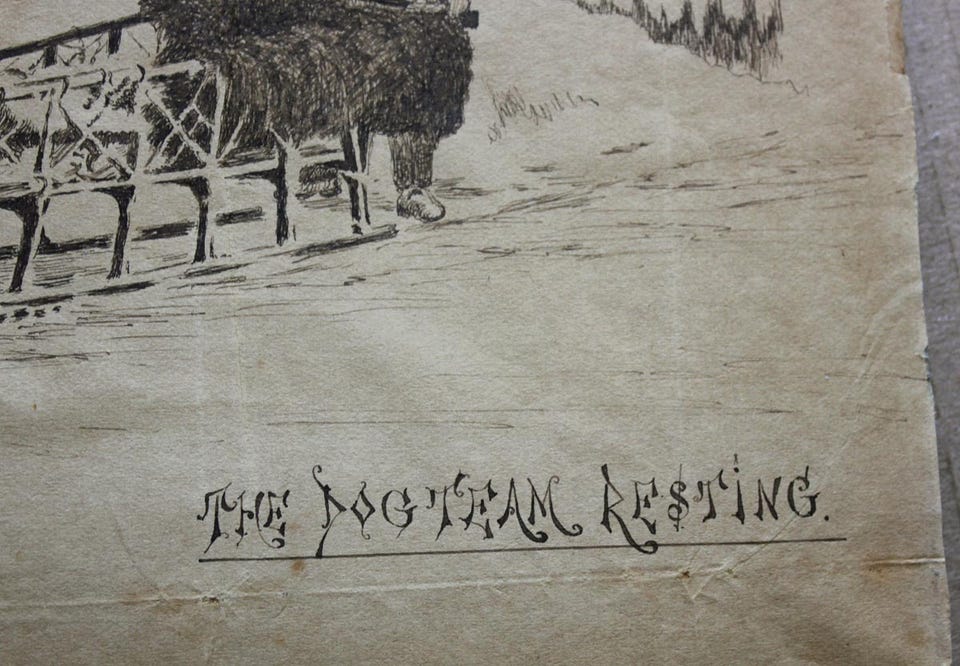 THE DOG TEAM RESTiNG.